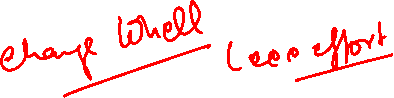 change Whell (ess effort